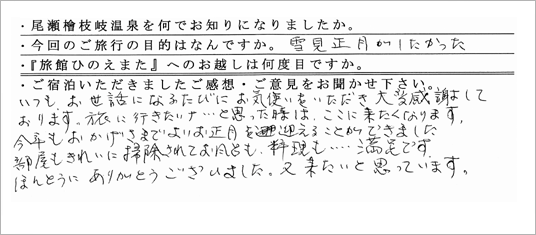 ・尾瀬檜枝岐温泉を何でお知りになりましたか。
・今回のご旅行の目的はなんですか。 雪見正月がしたかった
・『旅館ひのえまた』へのお越しは何度目ですか。
・ご宿泊いただきましたご感想・ご意見をお聞かせ下さい。
いつも、お世話になるたびにお気使いをいただき大変感謝して
おります。旅に行きたいナ…と思った時は、ここに来たくなります。
今年もおかげさまでよいお正月を迎えることができました
部屋もきれいに掃除されてお風呂も、料理も‥‥満足です。
ほんとうにありがとうございました。又来たいと思っています。